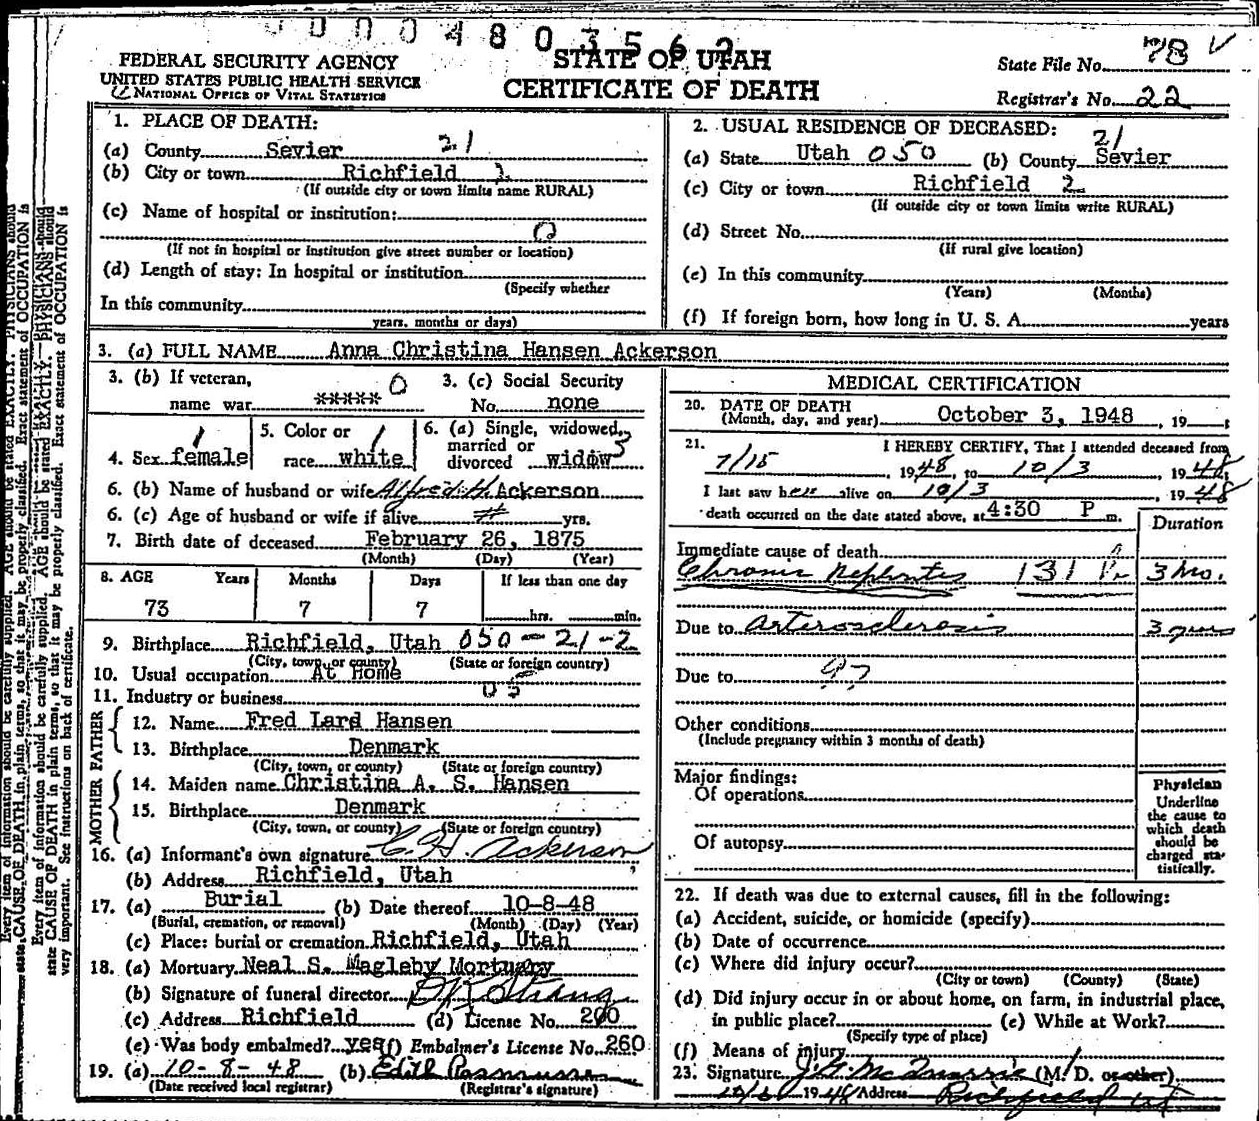 0004803562
FEDERAL SECURITY AGENCY
UNITED STATES PUBLIC HEALTH SERVICE
NATIONAL OFFICE OF VITAL STATISTICS
STATE OF UTAH
CERTIFICATE OF DEATH
State File No. 78
Registrar's No. 22
1. PLACE OF DEATH:
(a) County Sevier 21
(b) City or town Richfield
(If outside city or town limits name RURAL)
(c) Name of hospital or institution:
0
(If not in hospital or institution give street number or location)
(d) Length of stay: In hospital or institution
(Specify whether
In this community
years, months or days)
2. USUAL RESIDENCE OF DECEASED:
21
(a) State Utah 050 (b) County Sevier
(c) City or town Richfield 2
(If outside city or town limits write RURAL)
(d) Street No.
(If rural give location)
(e) In this community
(Years) (Months)
(f) If foreign born, how long in U. S. A. years
3. (a) FULL NAME Anna Christina Hansen Ackerson
3. (b) If veteran,
name war ***** 0
3. (c) Social Security
No. none
4. Sex female 1
5. Color or
race white 1
6. (a) Single, widowed,
married or
divorced widow 3
6. (b) Name of husband or wife Alfred H. Ackerson
6. (c) Age of husband or wife if alive yrs.
7. Birth date of deceased February 26, 1875
(Month) (Day) (Year)
8. AGE Years Months Days If less than one day
73 7 7 hrs. min.
9. Birthplace Richfield, Utah 050-21-2
(City, town, or county) (State or foreign country)
10. Usual occupation At Home
11. Industry or business 05
FATHER
12. Name Fred Lard Hansen
13. Birthplace Denmark
(City, town, or county) (State or foreign country)
MOTHER
14. Maiden name Christina A. S. Hansen
15. Birthplace Denmark
(City, town, or county) (State or foreign country)
16. (a) Informant's own signature C. H. Ackerson
(b) Address Richfield, Utah
17. (a) Burial (b) Date thereof 10-8-48
(Burial, cremation, or removal) (Month) (Day) (Year)
(c) Place: burial or cremation Richfield, Utah
18. (a) Mortuary Neal S. Magleby Mortuary
(b) Signature of funeral director
(c) Address Richfield (d) License No. 200
(e) Was body embalmed? yes (f) Embalmer's License No. 260
19. (a) 10-8-48 (b) Edith Rasmussen
(Date received local registrar) (Registrar's signature)
MEDICAL CERTIFICATION
20. DATE OF DEATH
(Month, day, and year) October 3, 1948, 19
21. I HEREBY CERTIFY, That I attended deceased from
7/15 1948, to 10/3, 1948,
I last saw her alive on 10/3, 1948
death occurred on the date stated above, at 4:30 P m.
Duration
Immediate cause of death
Chronic Nephritis 131 3 mo.
Due to Arterosclerosis 3 years
Due to 97
Other conditions
(Include pregnancy within 3 months of death)
Major findings:
Of operations
Of autopsy
Physician
Underline
the cause to
which death
should be
charged sta-
tistically.
22. If death was due to external causes, fill in the following:
(a) Accident, suicide, or homicide (specify)
(b) Date of occurrence
(c) Where did injury occur?
(City or town) (County) (State)
(d) Did injury occur in or about home, on farm, in industrial place,
in public place? (e) While at Work?
(Specify type of place)
(f) Means of injury
23. Signature J. G. McQuarrie (M. D. or other)
1948 Address Richfield Ut
Every item of information should be carefully supplied. AGE should be stated EXACTLY. PHYSICIANS should
state CAUSE OF DEATH in plain terms, so that it may be properly classified. Exact statement of OCCUPATION is
very important. See instructions on back of certificate.